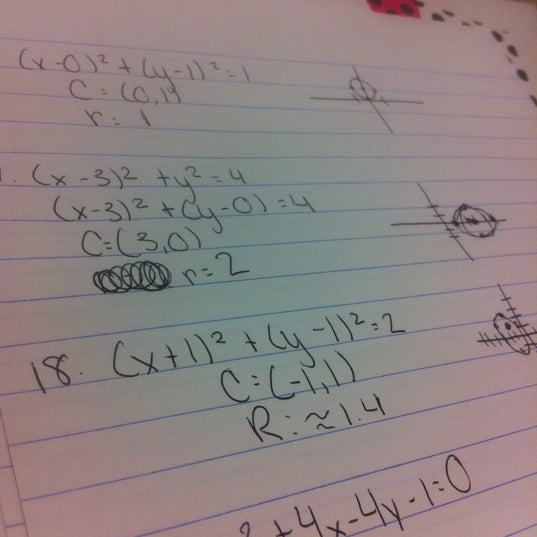 (x-0)² + (y-1)² = 1
C = (0,1)
r: 1
(x-3)² + y² = 4
(x-3)² + (y-0) = 4
C=(3,0)
r=2
18. (x+1)² + (y-1)² = 2
C=(-1,1)
R: ≈1.4
+4x-4y-1=0